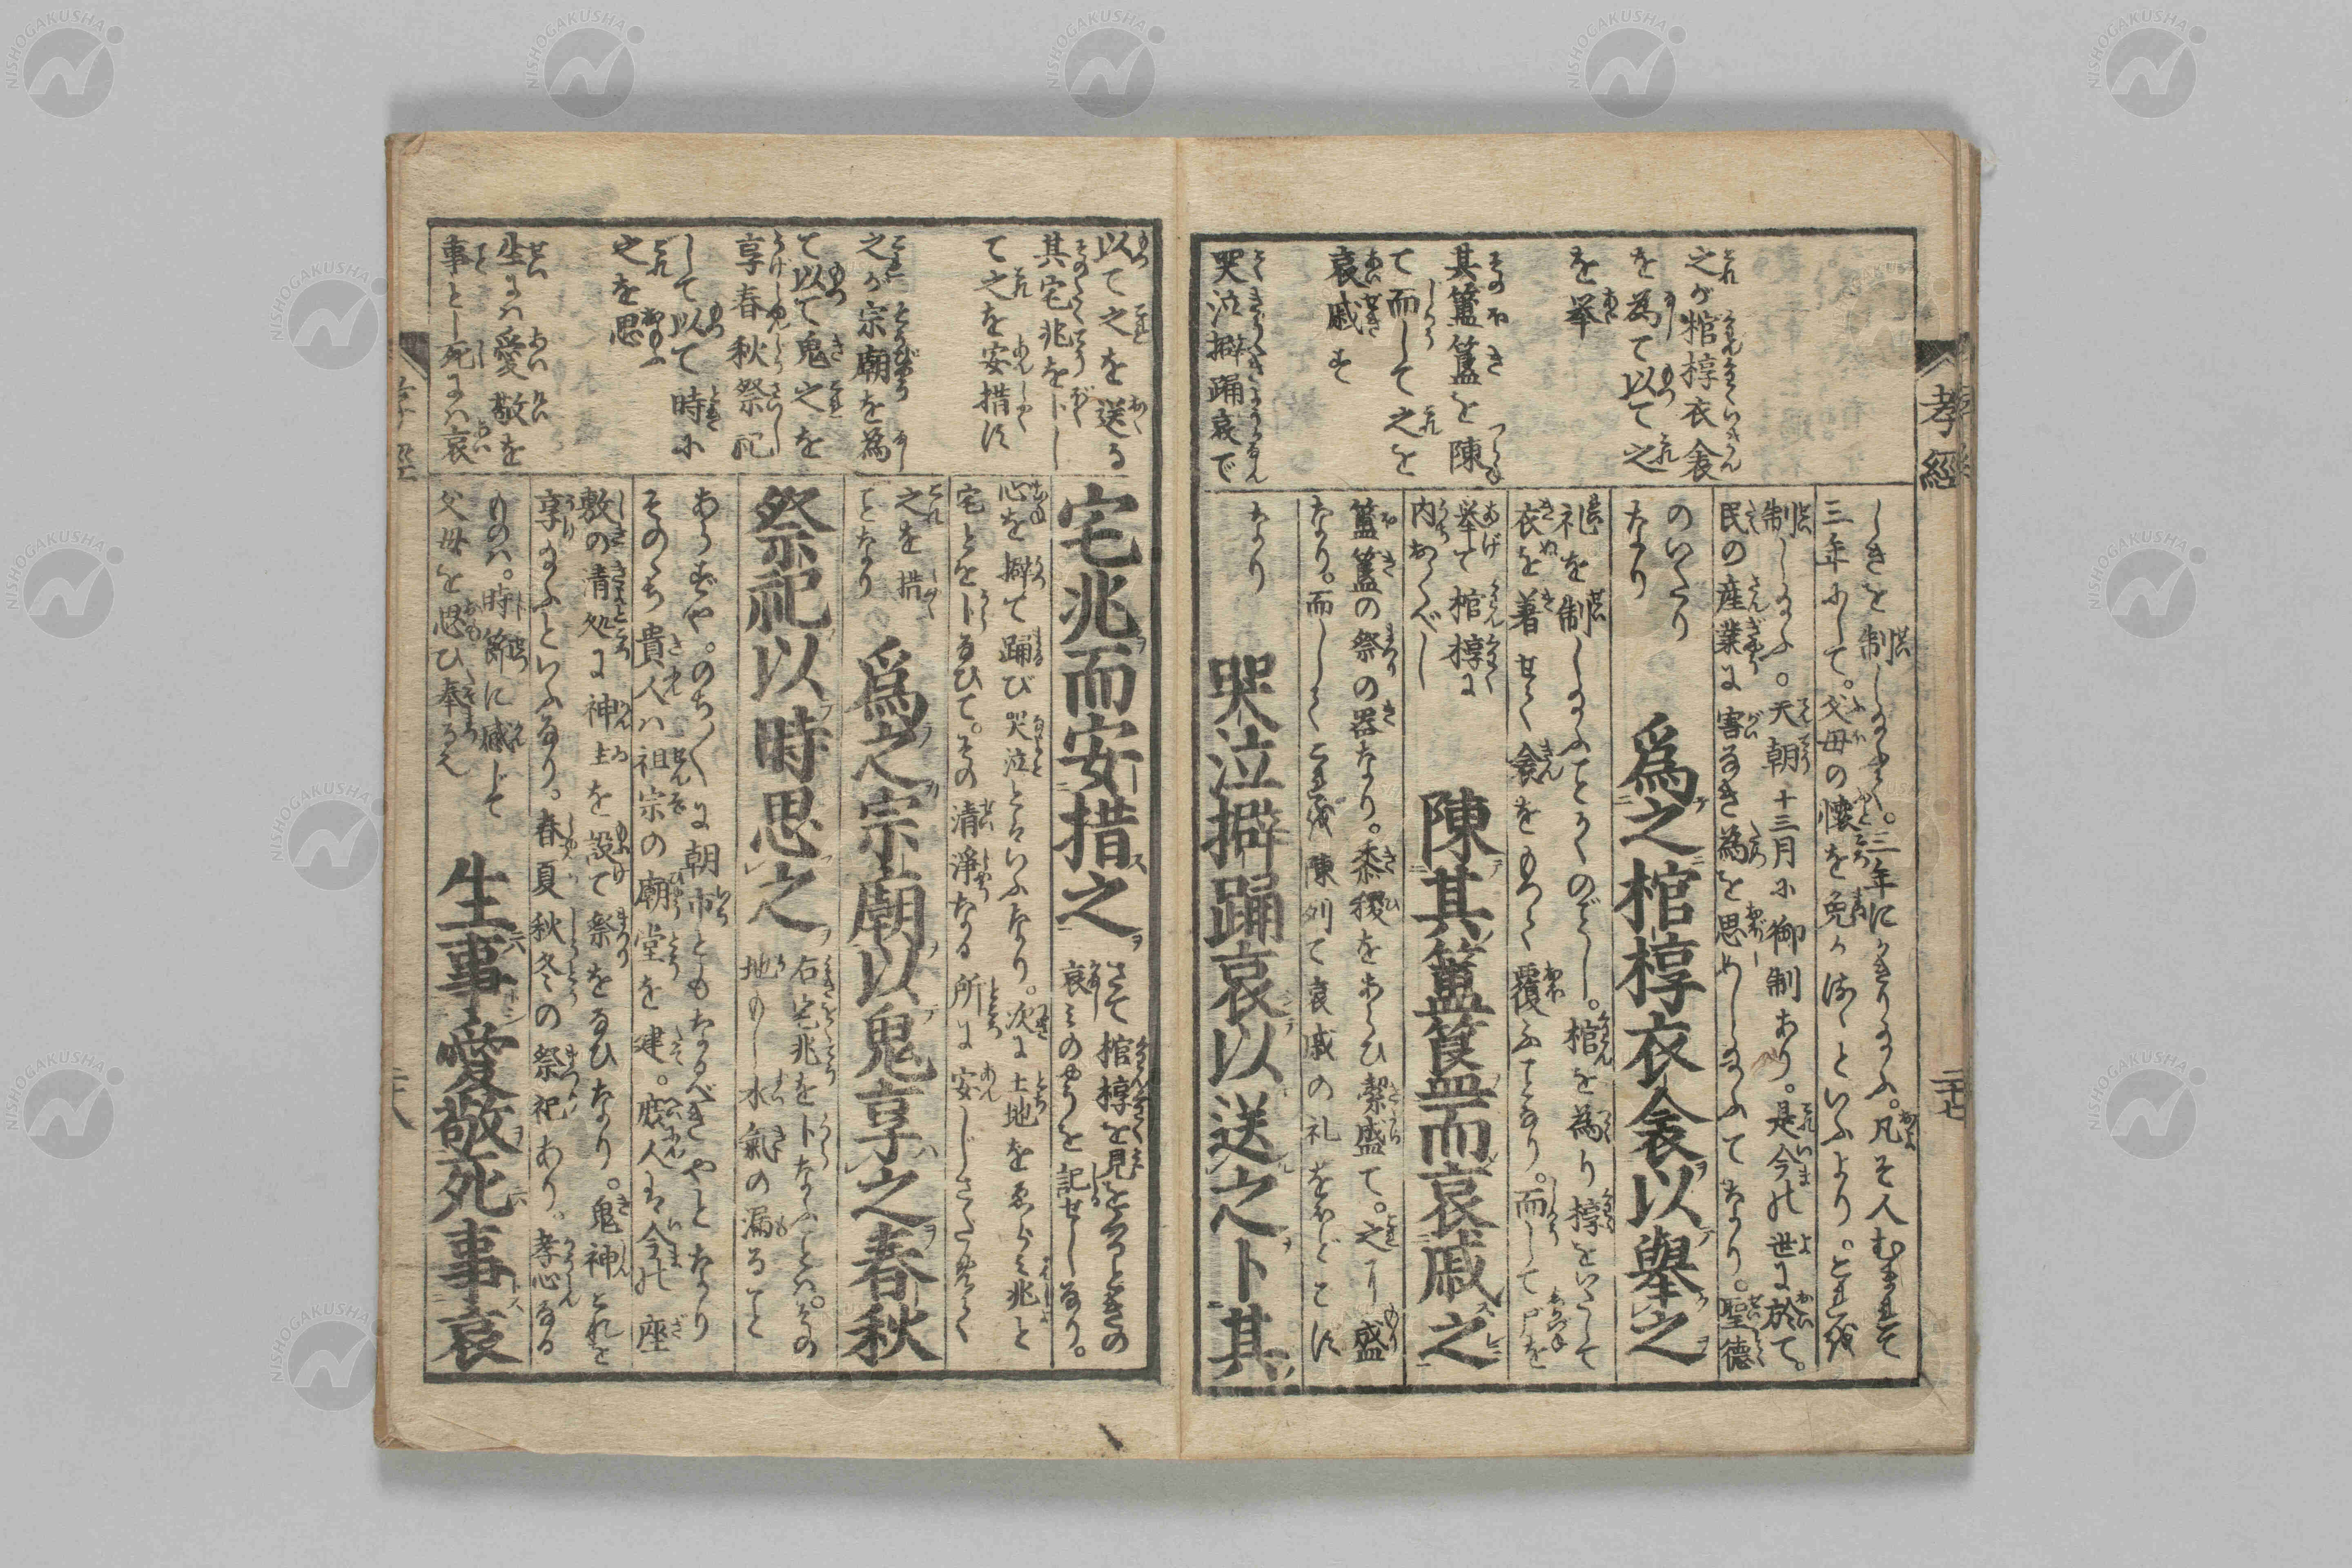 孝經
之が棺椁衣衾
を為て以て之
を挙
其簠簋を陳
て而して之を
哀戚す
哭泣擗踊哀で
しきを制し給ふ
三年にして。父母の懐を免
制し給ふ。天朝十三月に御制あり。是今の世に於て。
民の産業に害なき為を思めし給ふてなり。聖徳
のいたり
なり
爲之棺椁衣衾以舉之
礼を制し給ふことかくのごとし。棺を為り椁をいたして
衣を着せて衾をもつて覆ふことなり。而して尸を
挙て棺椁に
内おくべし
陳其簠簋而哀戚之
簠簋の祭の器なり。黍稷をあらひ潔盛て。之に盛
なり。而してこれを陳列て哀戚の礼をほどこす
なり
哭泣擗踊哀以送之卜其
二十七
以て之を送る
其宅兆を卜し
て之を安措す
之が宗廟を為
て以て鬼之を
享春秋祭祀
して以て時に
之を思
生には愛敬を
事とし死には哀
宅兆而安措之
さて棺椁を見をくるときの
哀みのやうを記せしなり。
心を擗て踊び哭泣とはいふなり。次に土地をゑらみ兆と
宅とを卜なひて。その清浄なる所に安じさだめをく
之を措
ことなり
爲之宗廟以鬼享之春秋
祭祀以時思之
右宅兆を卜なふとは。その
地もし水氣の漏ること
あらずや。のち〳〵に朝市ともなるべきやとなり
そのゝち貴人は祖宗の廟堂を建。庶人は今の座
敷の清処に神主を設て祭をなひなり。鬼神これを
享給ふといふなり。春夏秋冬の祭祀あり。孝心なる
ものは。時節に感じて
父母を思ひ奉るゆへ
生事愛敬死事哀